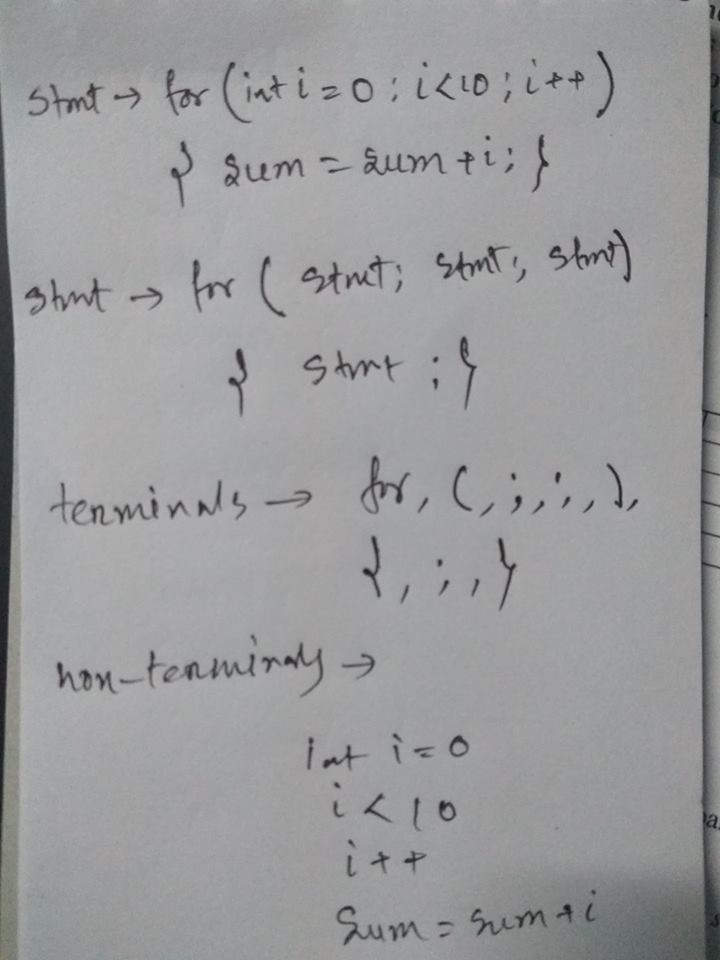 Stmt → for (int i = 0 ; i<10 ; i++)
{ sum = sum + i ; }
Stmt → for ( stmt; stmt; stmt)
{ stmt ; }
terminals → for, (, ;, ;, ),
{, ;, }
non-terminals →
int i = 0
i < 10
i++
Sum = sum + i